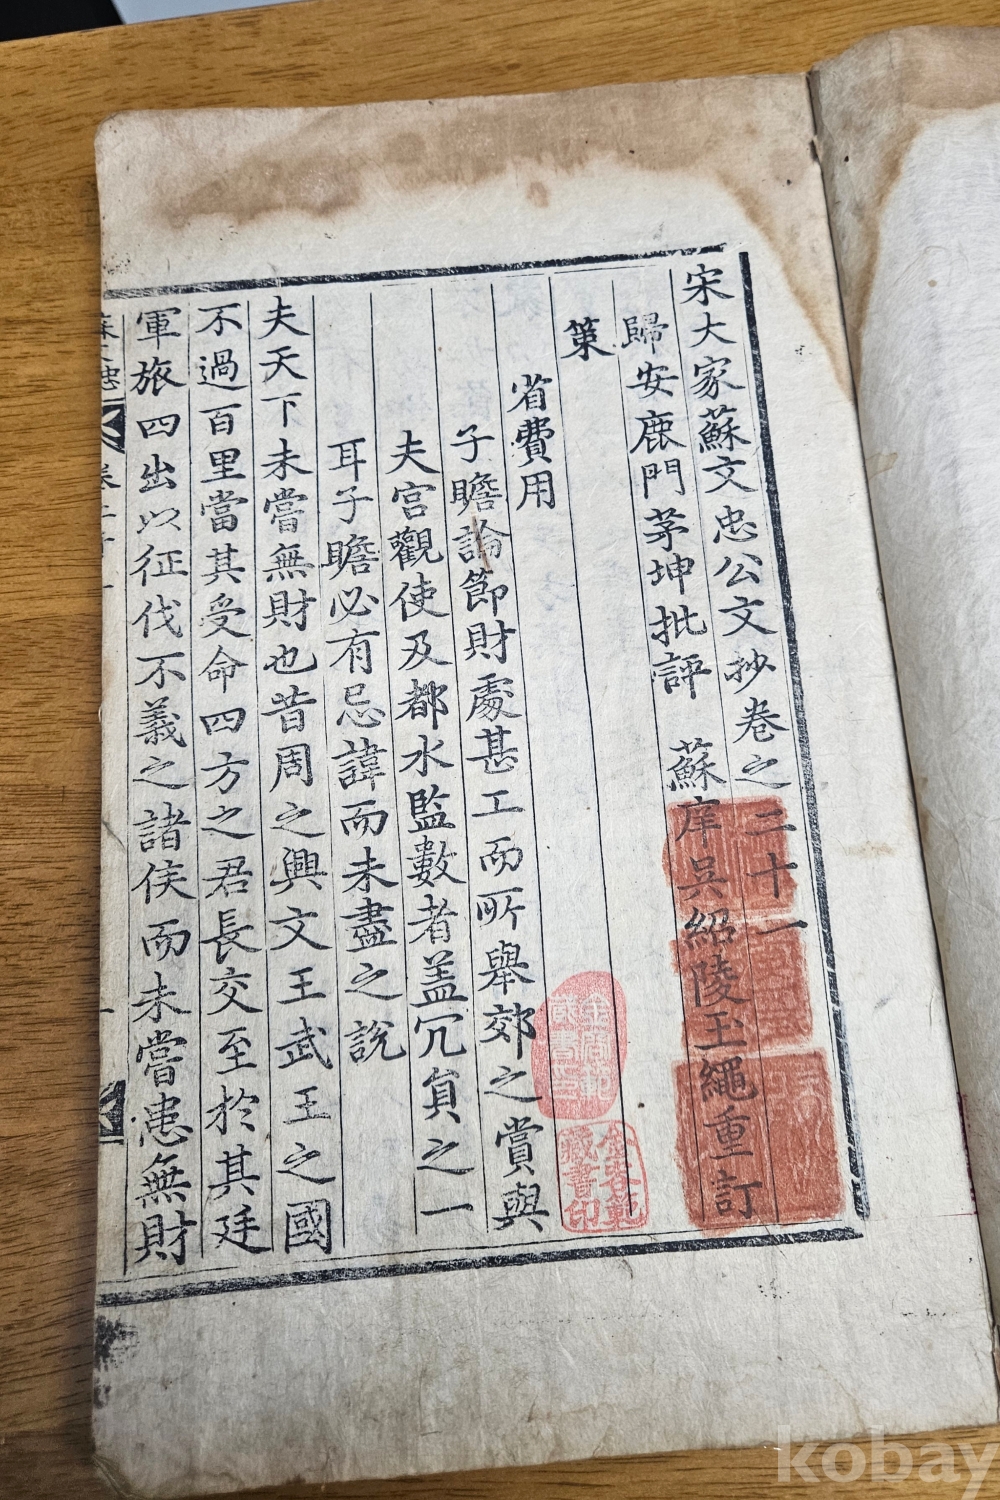 宋大家蘇文忠公文抄卷之二十一
歸安鹿門茅坤批評 蘇庠吳紹陵玉繩重訂
策
省費用
子瞻論節財處甚工而所舉郊之賞與
夫宮觀使及都水監數者盖冗員之一
耳子瞻必有忌諱而未盡之說
夫天下未嘗無財也昔周之興文王武王之國
不過百里當其受命四方之君長交至於其廷
軍旅四出以征伐不義之諸侯而未嘗患無財
藏書印
kobay